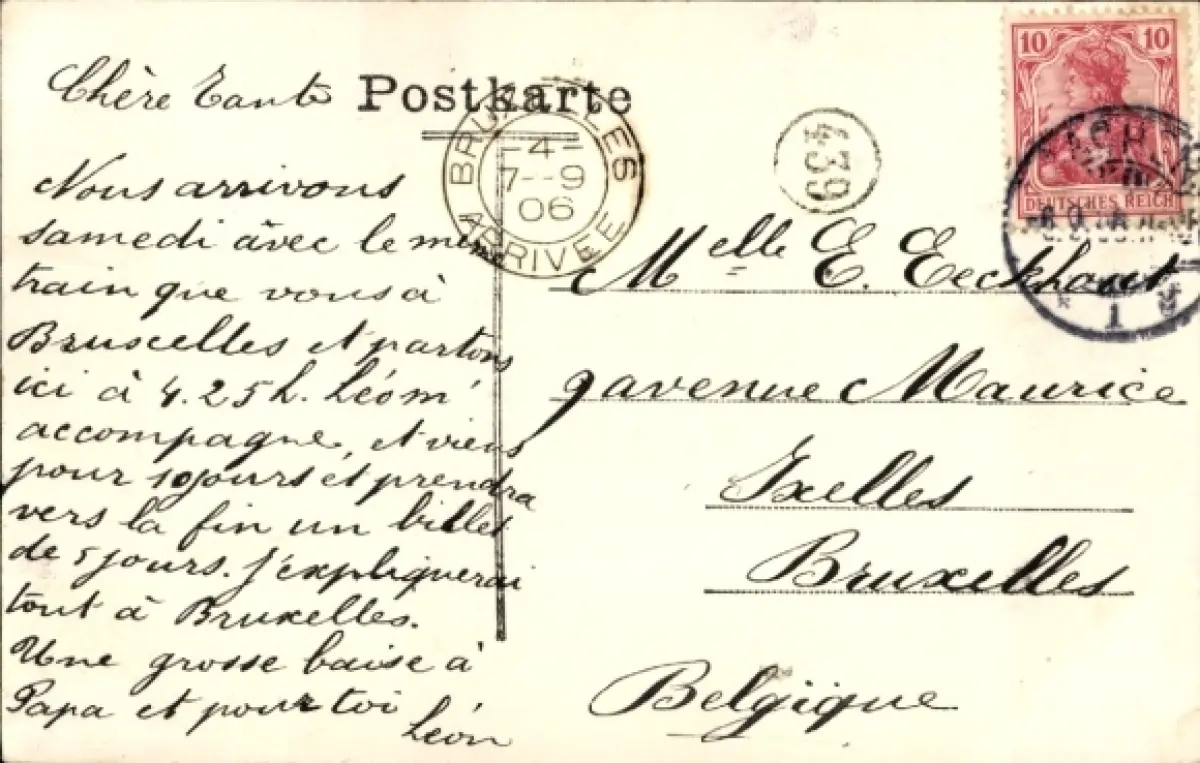 Postkarte
Chère Tante
Nous arrivons
samedi àvec le même
train que vous à
Bruscelles et partons
ici à 4.25h. Léom'
accompagne, et viens
pour 10 jours et prendra
vers la fin un billes
de 5 jours. J'expliquerai
tout à Bruxelles.
Une grosse baise à
Papa et pour toi
Léon
BRUXELLES
4
7--9
06
ARRIVEE
439
10 10
DEUTSCHES REICH
1
Melle E. Eeckhout
9 avenue Maurice
Ixelles
Bruxelles
Belgique